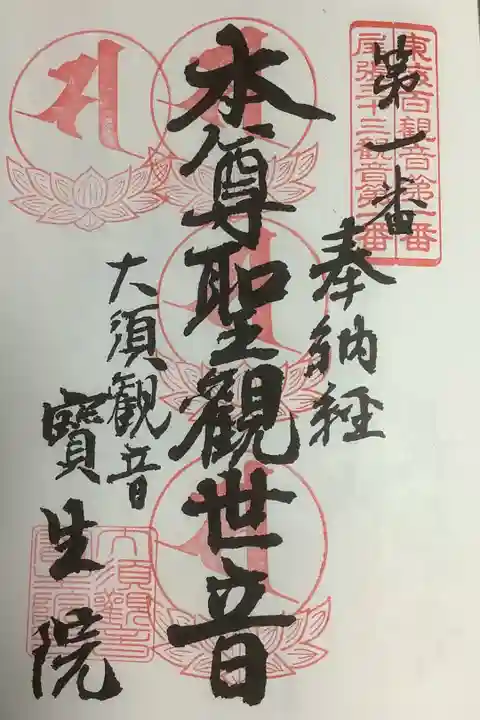 東海百観音第一番
尾張三十三観音第一番
第一番
奉納経
本尊聖観世音
大須観音
寶生院
大須観音